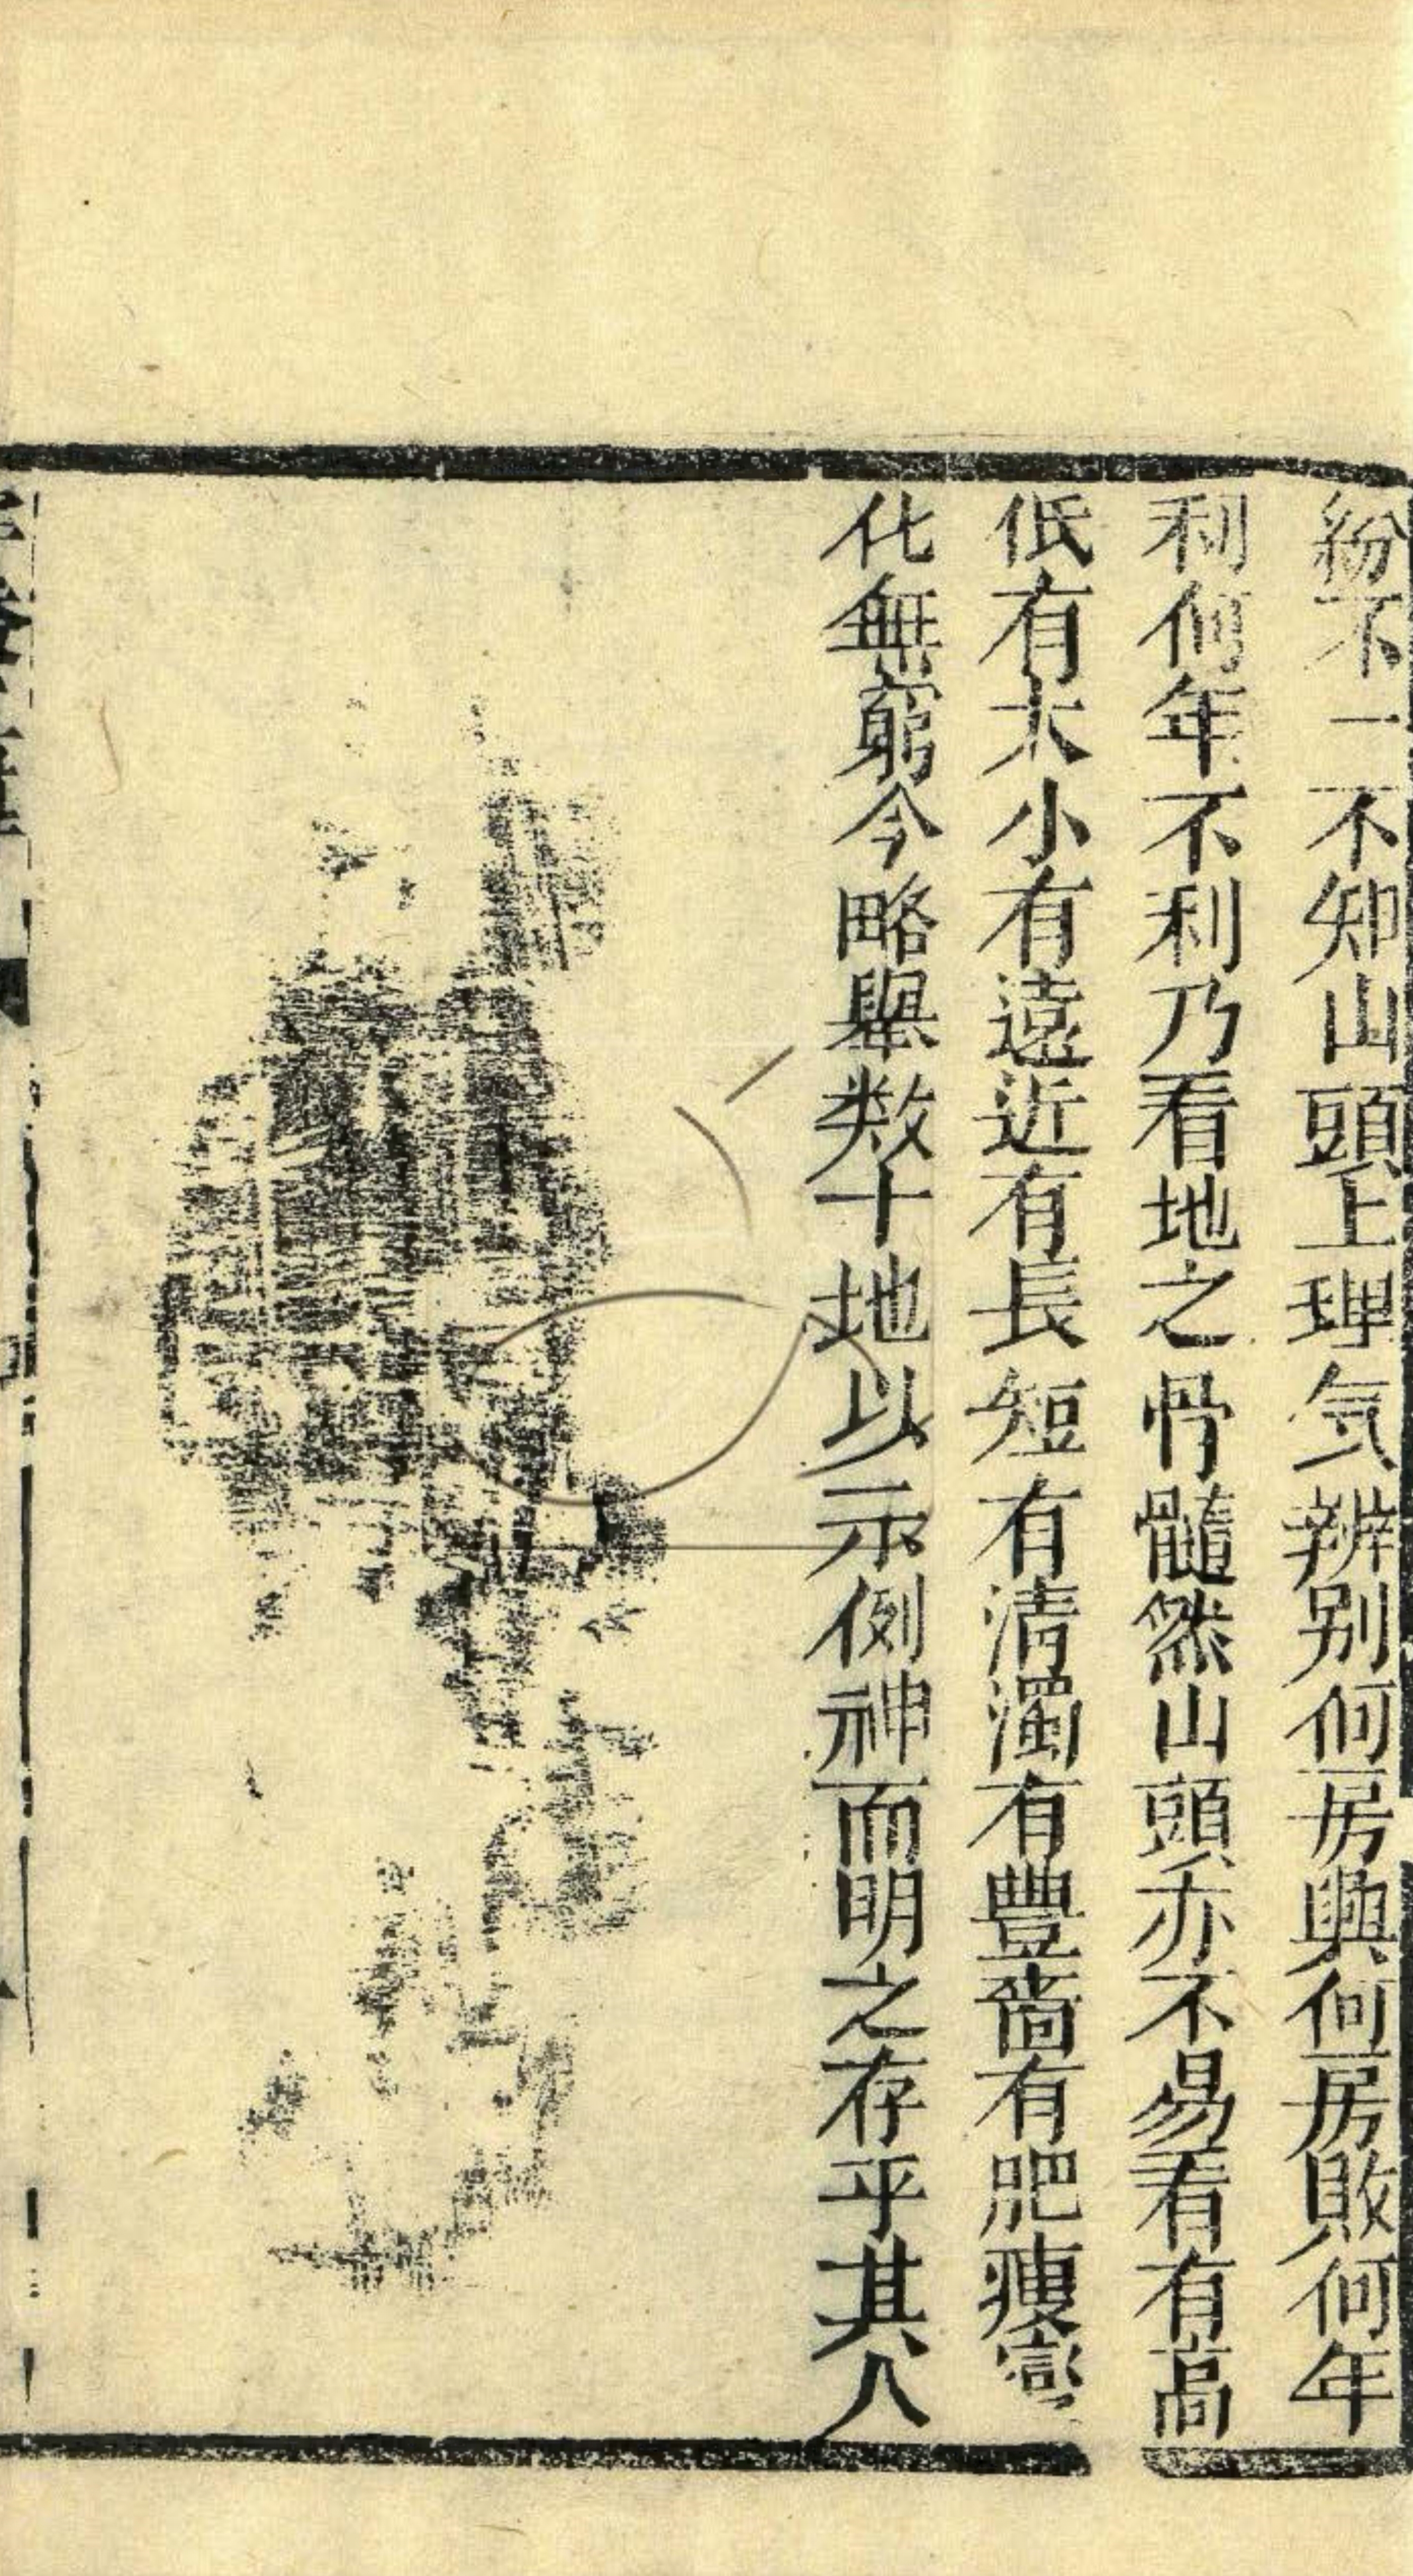 紛不一不知山頭上理气辨别何房興何房敗何年
利何年不利乃看地之骨髓然山頭亦不易看有高
低有大小有遠近有長短有清濁有豐啬有肥瘦變
化無窮今略舉数十地以示例神而明之存乎其人